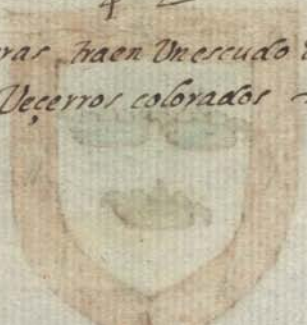 ras traen Un escudo
Veçerros colorados